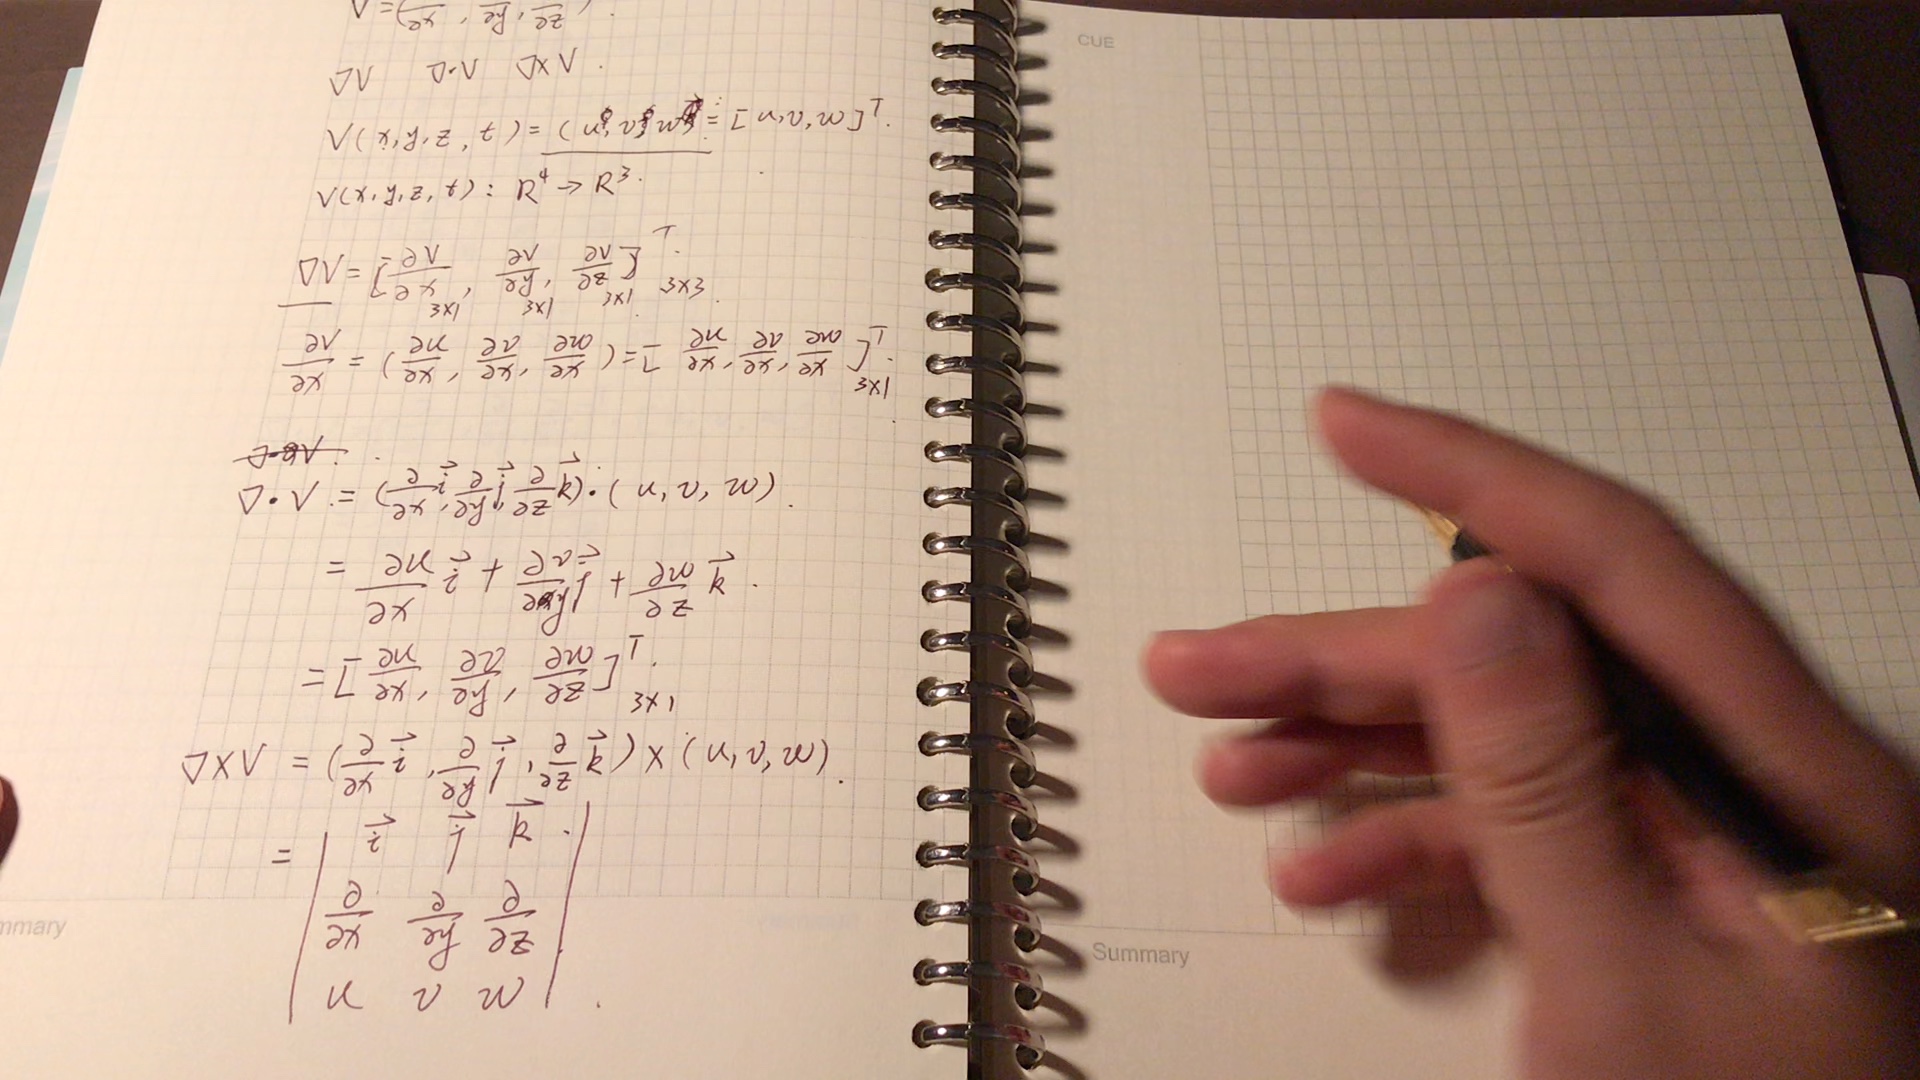 ∇ = (∂/∂x, ∂/∂y, ∂/∂z)
∇V ∇·V ∇×V .
V(x,y,z,t) = (u, v, w) = [u,v,w]ᵀ.
V(x,y,z,t): R⁴ → R³.
∇V = [∂V/∂x 3×1, ∂V/∂y 3×1, ∂V/∂z 3×1]ᵀ 3×3.
∂V/∂x = (∂u/∂x, ∂v/∂x, ∂w/∂x) = [∂u/∂x, ∂v/∂x, ∂w/∂x]ᵀ 3×1.
∇·V = (∂/∂x i⃗, ∂/∂y j⃗, ∂/∂z k⃗)·(u, v, w).
= ∂u/∂x i⃗ + ∂v/∂y j⃗ + ∂w/∂z k⃗.
= [∂u/∂x, ∂v/∂y, ∂w/∂z]ᵀ 3×1.
∇×V = (∂/∂x i⃗, ∂/∂y j⃗, ∂/∂z k⃗) × (u, v, w).
= | i⃗ j⃗ k⃗ |
∂/∂x ∂/∂y ∂/∂z
u v w .
Summary
CUE
Summary